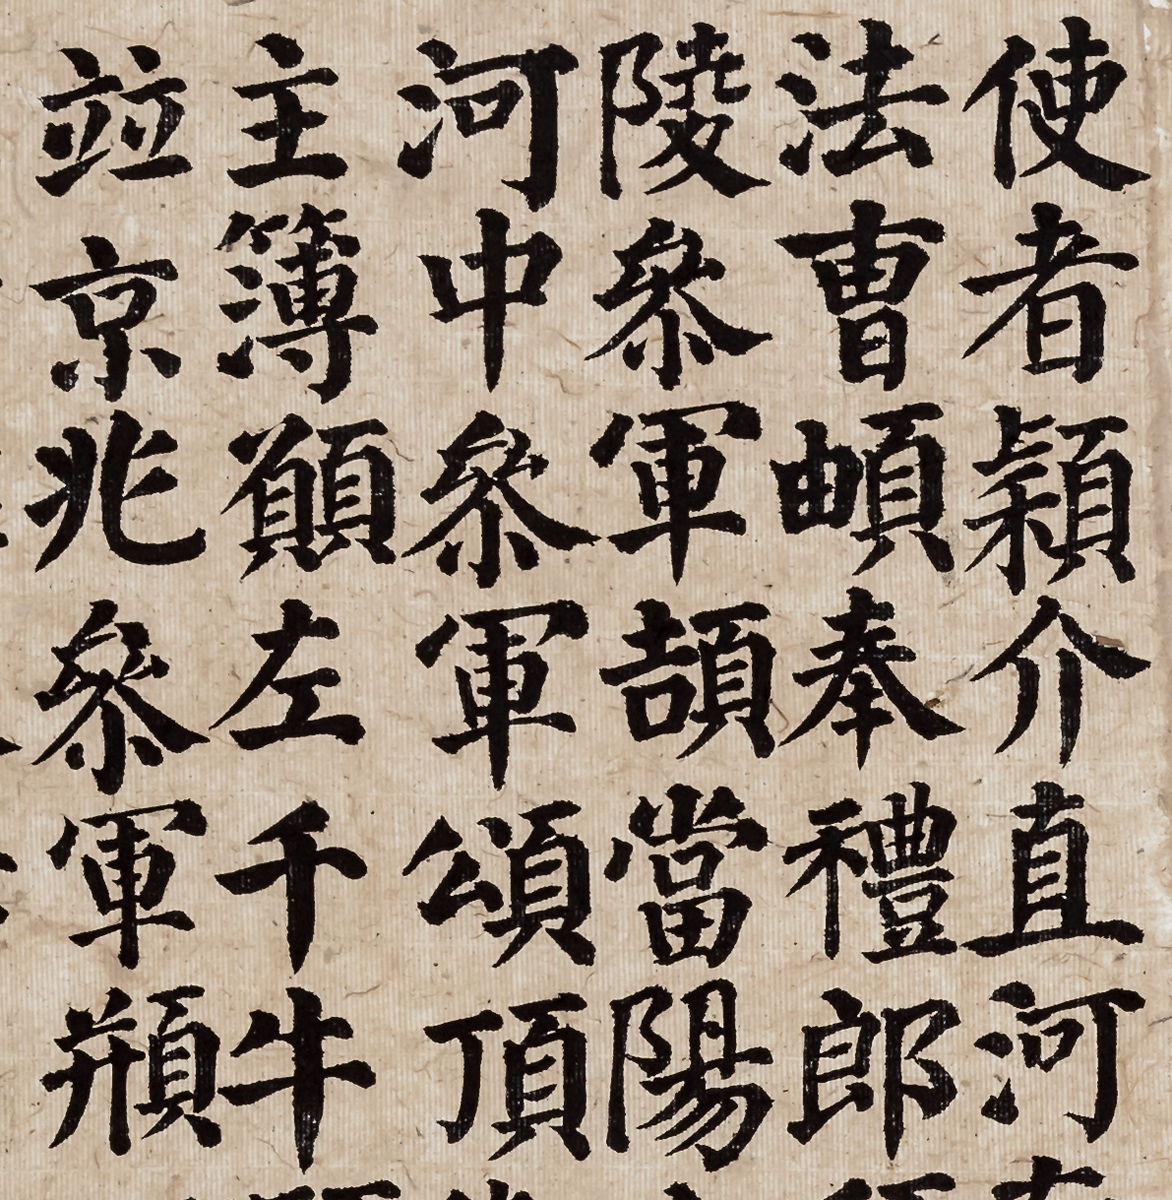 使者穎介直河
法曹頔奉禮郎
陵參軍頡當陽
河中參軍頌頂
主簿願左千牛
竝京兆參軍頩